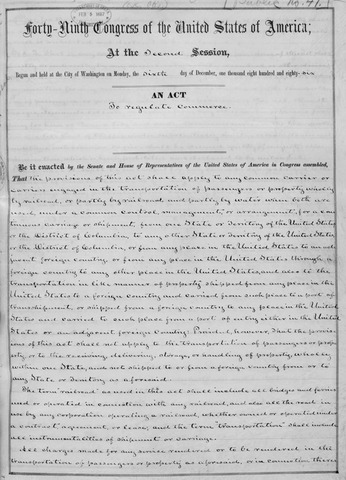 Public No. 41.
FEB 8 1887
Forty-Ninth Congress of the United States of America;
At the Second Session,
Begun and held at the City of Washington on Monday, the sixth day of December, one thousand eight hundred and eighty-six
AN ACT
To regulate Commerce.
Be it enacted by the Senate and House of Representatives of the United States of America in Congress assembled,
That the provisions of this act shall apply to any common carrier or
carriers engaged in the transportation of passengers or property wholly
by railroad, or partly by railroad and partly by water when both are
used, under a common control, management, or arrangement, for a con-
tinuous carriage or shipment, from one State or Territory of the United States,
or the District of Columbia, to any other State or Territory of the United States,
or the District of Columbia, or from any place in the United States to an ad-
jacent foreign country, or from any place in the United States through a
foreign country to any other place in the United States, and also to the
transportation in like manner of property shipped from any place in the
United States to a foreign country and carried from such place to a port of
transshipment, or shipped from a foreign country to any place in the United
States and carried to such place from a port of entry either in the United
States or an adjacent foreign country: Provided, however, That the provis-
ions of this act shall not apply to the transportation of passengers or prop-
erty, or to the receiving, delivering, storage, or handling of property, wholly
within one State, and not shipped to or from a foreign country from or to
any State or Territory as aforesaid.
The term "railroad" as used in this act shall include all bridges and ferries
used or operated in connection with any railroad, and also all the road in
use by any corporation operating a railroad, whether owned or operated under
a contract, agreement, or lease; and the term "transportation" shall include
all instrumentalities of shipment or carriage.
All charges made for any service rendered or to be rendered in the
transportation of passengers or property as aforesaid, or in connection there